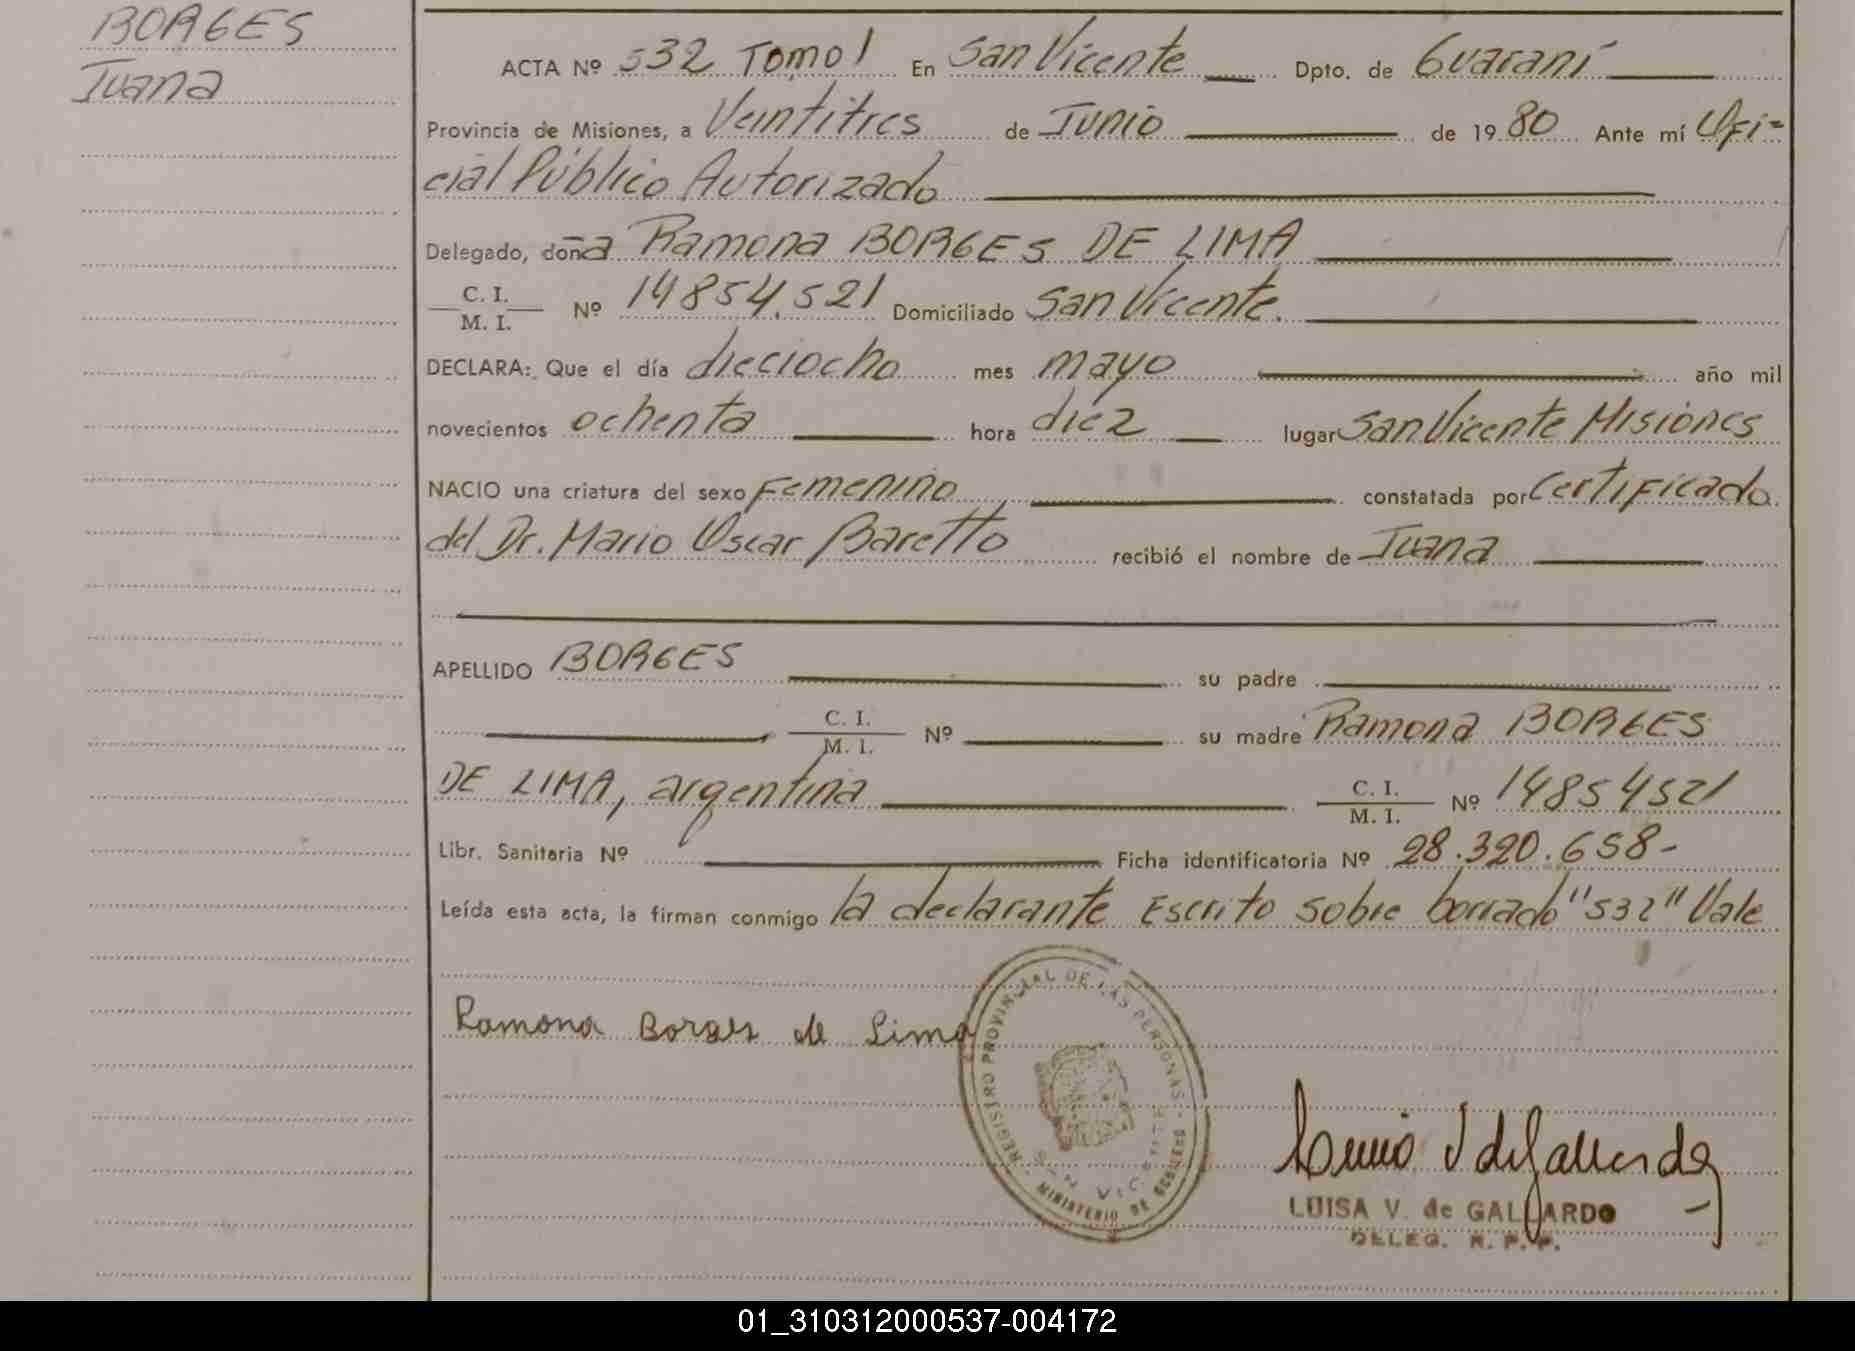 BORGES
Juana
ACTA Nº 532 Tomo I En San Vicente Dpto. de Guaraní
Provincia de Misiones, a Veintitres de Junio de 1980 Ante mí Ofi=
cial Público Autorizado
Delegado, doña Ramona BORGES DE LIMA
C. I.
M. I. Nº 14854.521 Domiciliado San Vicente.
DECLARA: Que el día dieciocho mes mayo año mil
novecientos ochenta hora diez lugar San Vicente Misiones
NACIO una criatura del sexo Femenino constatada por Certificado
del Dr. Mario Oscar Baretto recibió el nombre de Juana
APELLIDO BORGES su padre
C. I.
M. I. Nº su madre Ramona BORGES
DE LIMA, argentina C. I.
M. I. Nº 14854521
Libr. Sanitaria Nº Ficha identificatoria Nº 28.320.658-
Leída esta acta, la firman conmigo la declarante Escrito sobre borrado "532" Vale
Ramona Borges de Lima
REGISTRO PROVINCIAL DE LAS PERSONAS
SAN VICENTE
MINISTERIO DE GOBIERNO
LUISA V. de GALLARDO
DELEG. R. P. P.
01_310312000537-004172